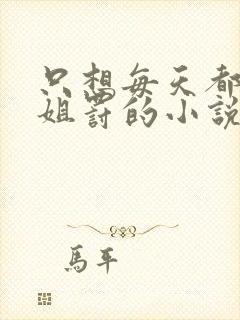 只想每天都
姐罚的小說
馬平